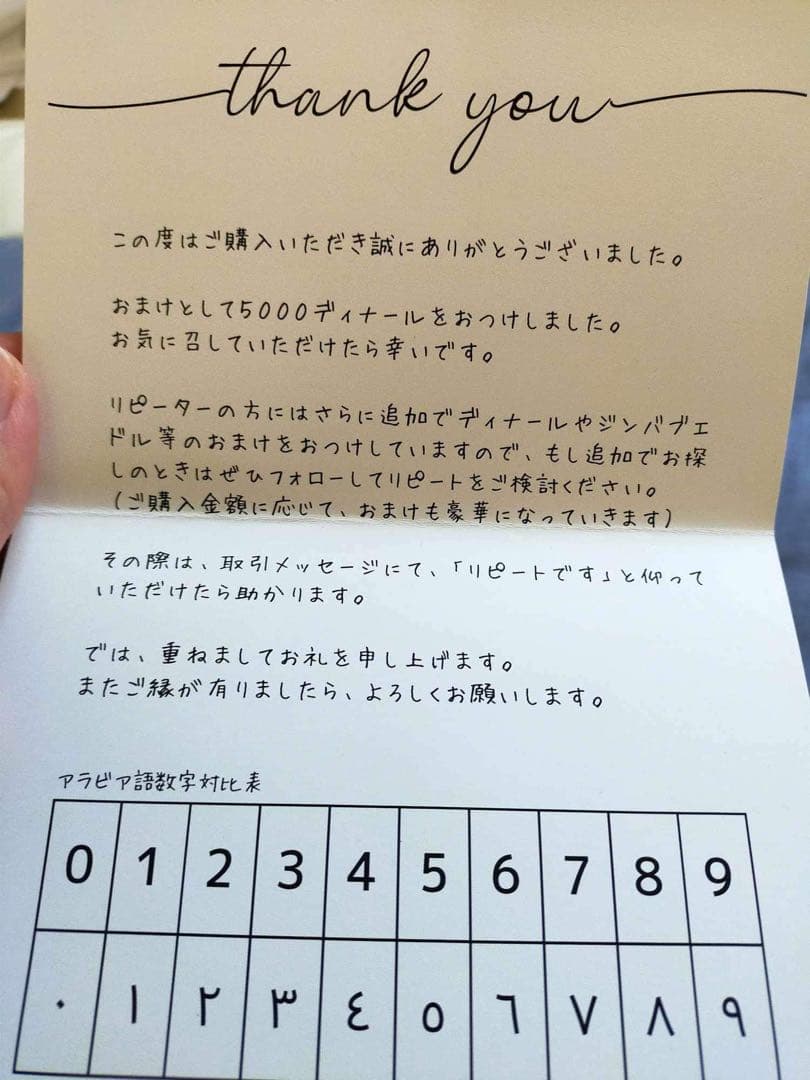 thank you
この度はご購入いただき誠にありがとうございました。
おまけとして5000ディナールをおつけしました。
お気に召していただけたら幸いです。
リピーターの方にはさらに追加でディナールやジンバブエ
ドル等のおまけをおつけしていますので、もし追加でお探
しのときはぜひフォローしてリピートをご検討ください。
(ご購入金額に応じて、おまけも豪華になっていきます)
その際は、取引メッセージにて、「リピートです」と仰って
いただけたら助かります。
では、重ねましてお礼を申し上げます。
またご縁が有りましたら、よろしくお願いします。
アラビア語数字対比表
0 1 2 3 4 5 6 7 8 9
٠ ١ ٢ ٣ ٤ ٥ ٦ ٧ ٨ ٩